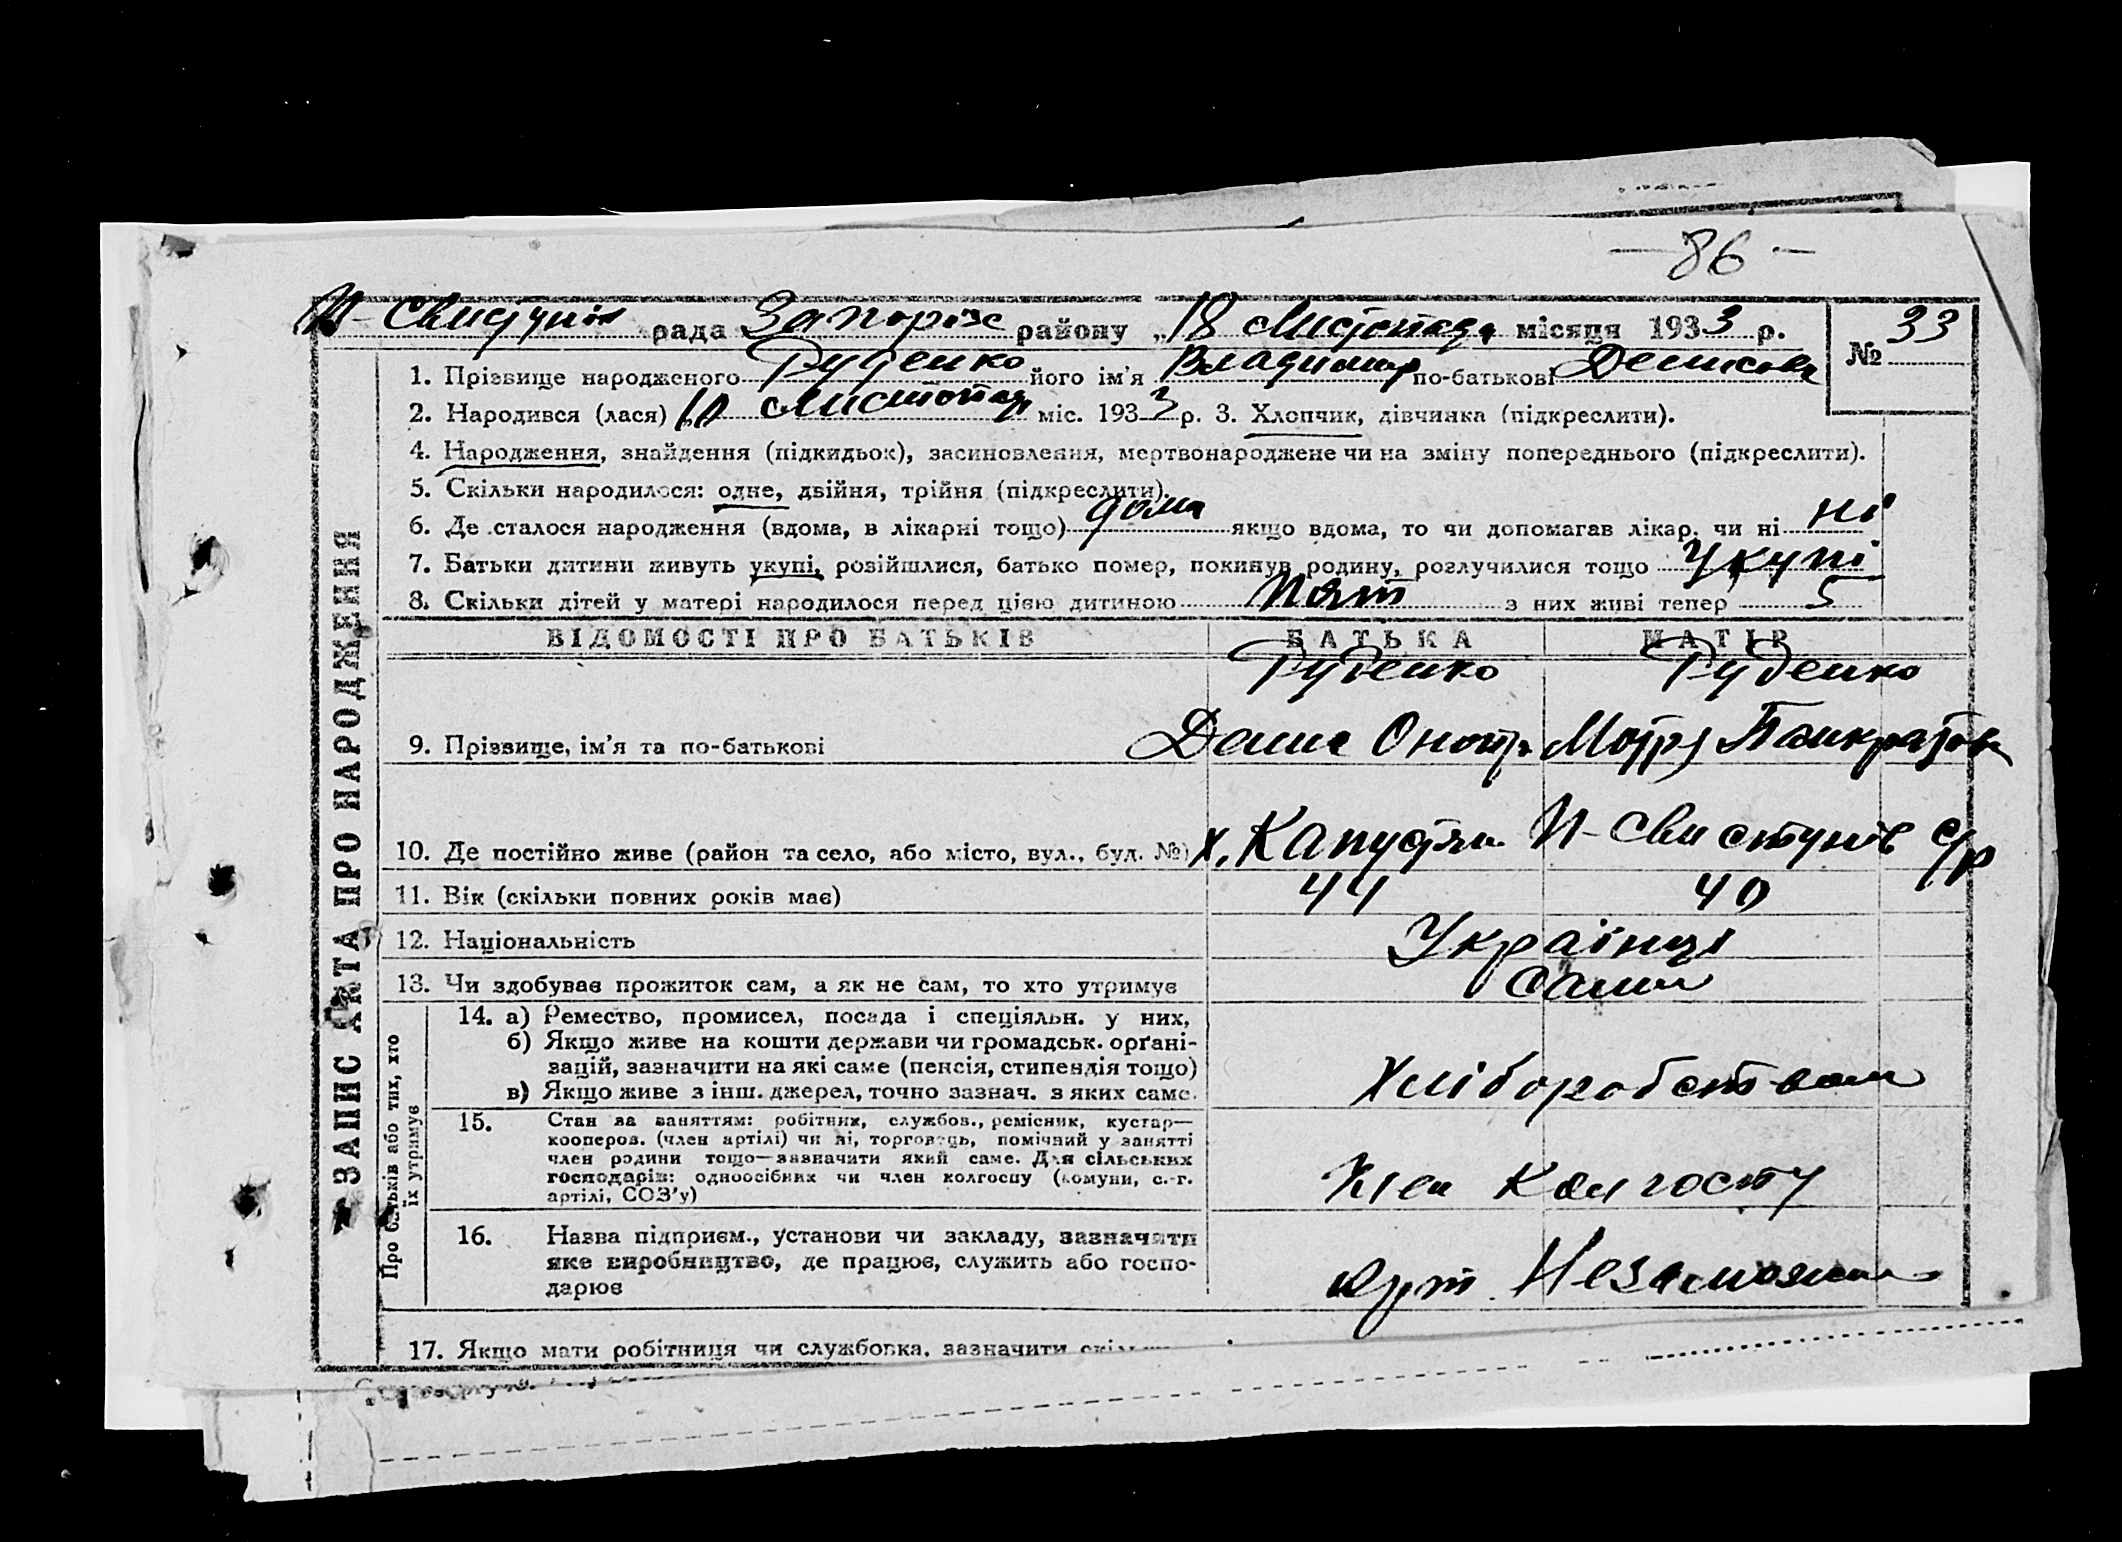 — 86 —
Н-Свистунів рада Запоріз району „18 Листопада місяця 1933 р. № 33
1. Прізвище народженого Руденко його ім'я Владимир по-батькові Денисов
2. Народився (лася) „10 Листопад міс. 1933 р. 3. Хлопчик, дівчинка (підкреслити).
4. Народження, знайдення (підкидьок), засиновлення, мертвонароджене чи на зміну попереднього (підкреслити).
5. Скільки народилося: одне, двійня, трійня (підкреслити).
6. Де сталося народження (вдома, в лікарні тощо) дома якщо вдома, то чи допомагав лікар, чи ні ні
7. Батьки дитини живуть укупі, розійшлися, батько помер, покинув родину, розлучилися тощо Укупі
8. Скільки дітей у матері народилося перед цією дитиною Пят з них живі тепер 5
ВІДОМОСТІ ПРО БАТЬКІВ БАТЬКА МАТІР
Руденко Руденко
9. Прізвище, ім'я та по-батькові Денис Оноп. Мотря Панкратов
10. Де постійно живе (район та село, або місто, вул., буд. №) х. Капустян Н-Свистунів с/р
11. Вік (скільки повних років має) 44 40
12. Національність Українці
13. Чи здобуває прожиток сам, а як не сам, то хто утримує сами
14. а) Ремество, промисел, посада і спеціяльн. у них,
б) Якщо живе на кошти держави чи громадськ. орґані-
зацій, зазначити на які саме (пенсія, стипендія тощо)
в) Якщо живе з інш. джерел, точно зазнач. з яких саме. Хліборобством
15. Стан за заняттям: робітник, службов., ремісник, кустар—
коопероз. (член артілі) чи ні, торговець, помічний у занятті
член родини тощо—зазначити який саме. Для сільських
господарів: одноосібник чи член колгоспу (комуни, с.-г.
артілі, СОЗ'у) Член Колгоспу
16. Назва підприєм., установи чи закладу, зазначити
яке виробництво, де працює, служить або госпо-
дарює Арт. Незаможник
17. Якщо мати робітниця чи службовка, зазначити
ЗАПИС АКТА ПРО НАРОДЖЕННЯ
Про батьків або тих, хто
їх утримує